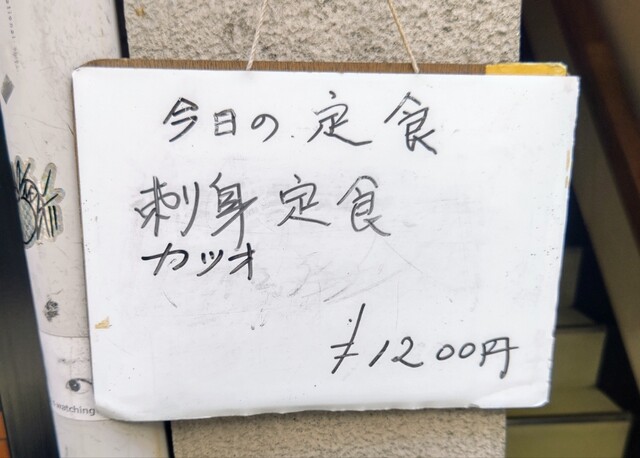 今日の定食
刺身定食
カツオ
¥1200円
watching